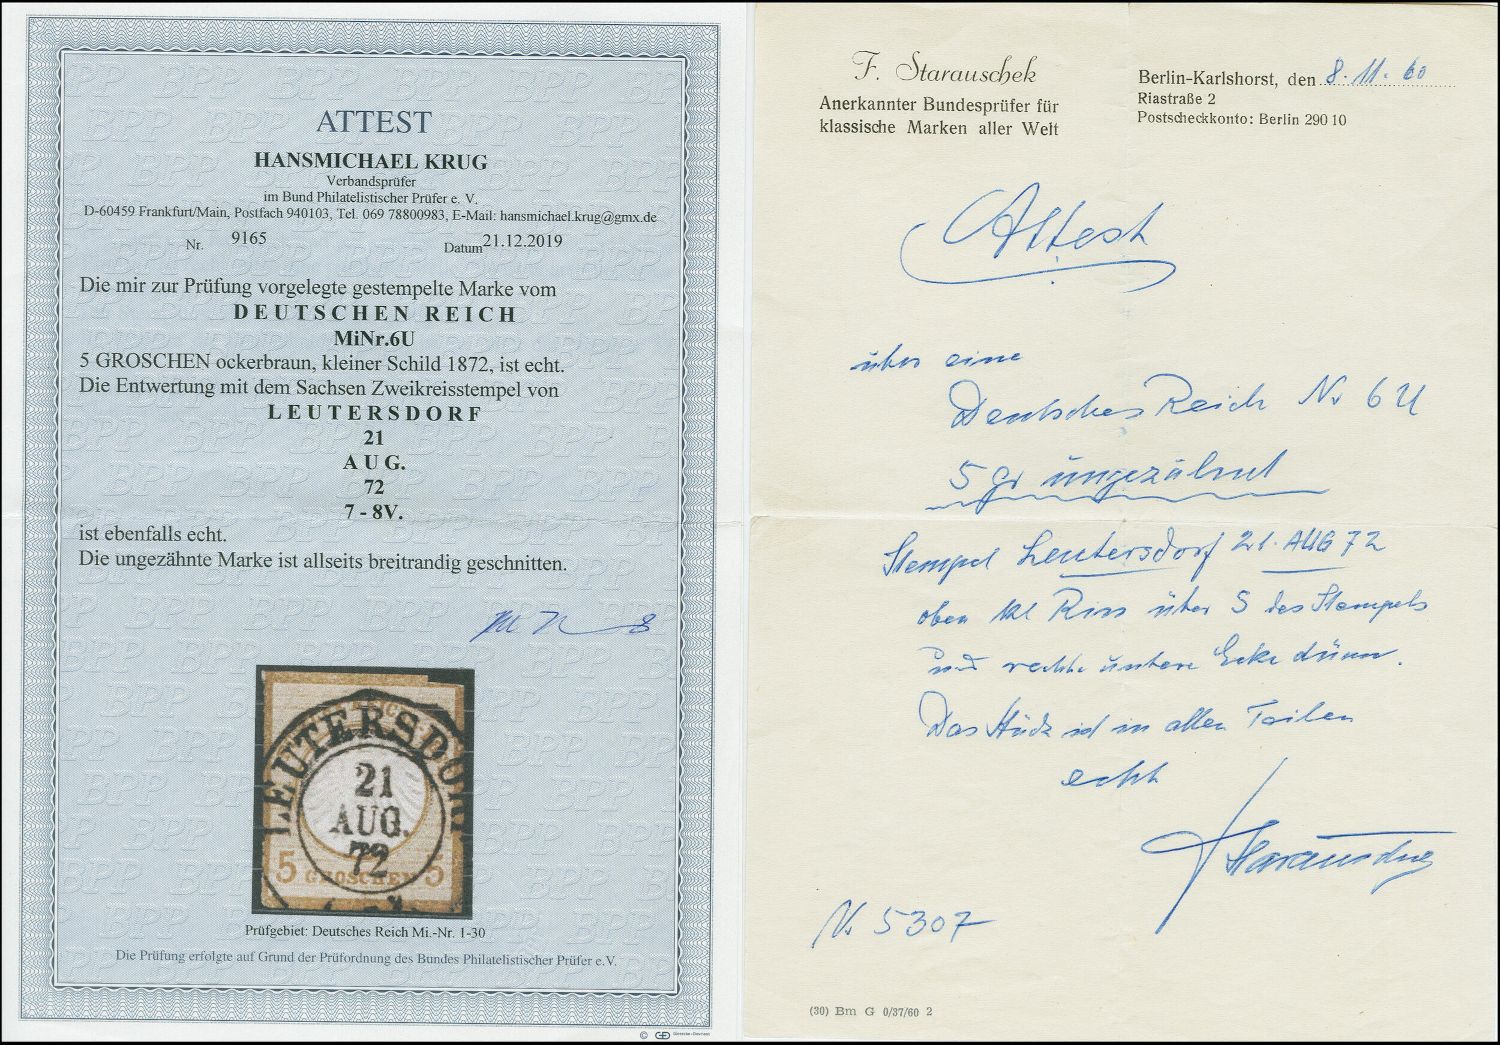 ATTEST
HANSMICHAEL KRUG
Verbandsprüfer
im Bund Philatelistischer Prüfer e. V.
D-60459 Frankfurt/Main, Postfach 940103, Tel. 069 78800983, E-Mail: hansmichael.krug@gmx.de
Nr. 9165 Datum 21.12.2019
Die mir zur Prüfung vorgelegte gestempelte Marke vom
DEUTSCHEN REICH
MiNr.6U
5 GROSCHEN ockerbraun, kleiner Schild 1872, ist echt.
Die Entwertung mit dem Sachsen Zweikreisstempel von
LEUTERSDORF
21
AUG.
72
7 - 8V.
ist ebenfalls echt.
Die ungezähnte Marke ist allseits breitrandig geschnitten.
LEUTERSDORF
21
AUG.
72
5 GROSCHEN 5
Prüfgebiet: Deutsches Reich Mi.-Nr. 1-30
Die Prüfung erfolgte auf Grund der Prüfordnung des Bundes Philatelistischer Prüfer e.V.
F. Starauschek
Anerkannter Bundesprüfer für
klassische Marken aller Welt
Berlin-Karlshorst, den 8.11.60
Riastraße 2
Postscheckkonto: Berlin 290 10
Attest
über eine
Deutsches Reich Nr 6 U
5 gr ungezähnt
Stempel Leutersdorf 21. AUG 72
oben kl Riss über S des Stempels
und rechte untere Ecke dünn.
Das Stück ist in allen Teilen
echt
Starauschek
Nr 5307
(30) Bm G 0/37/60 2